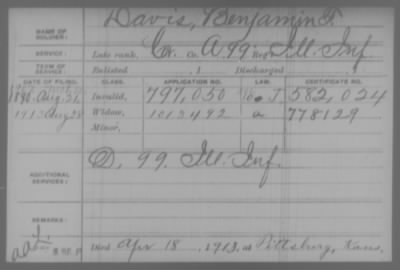 NAME OF SOLDIER: Davis, Benjamin F.
SERVICE: Late rank, Co. A 99 Reg't Ill. Inf.
TERM OF SERVICE: Enlisted , 1 Discharged , 1
DATE OF FILING. CLASS. APPLICATION NO. LAW. CERTIFICATE NO.
1890 Aug. 21, Invalid, 797,050 J 582,024
1913 Aug 28 Widow, 1013492 a 778129
Minor,
ADDITIONAL SERVICES: D, 99. Ill. Inf.
REMARKS:
Died Apr 18, 1913, at Pittsburg, Kans.